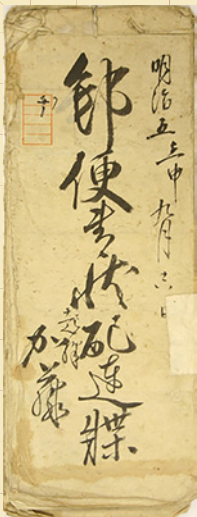 明治五壬申九月
郵便書状配達牒
加藤